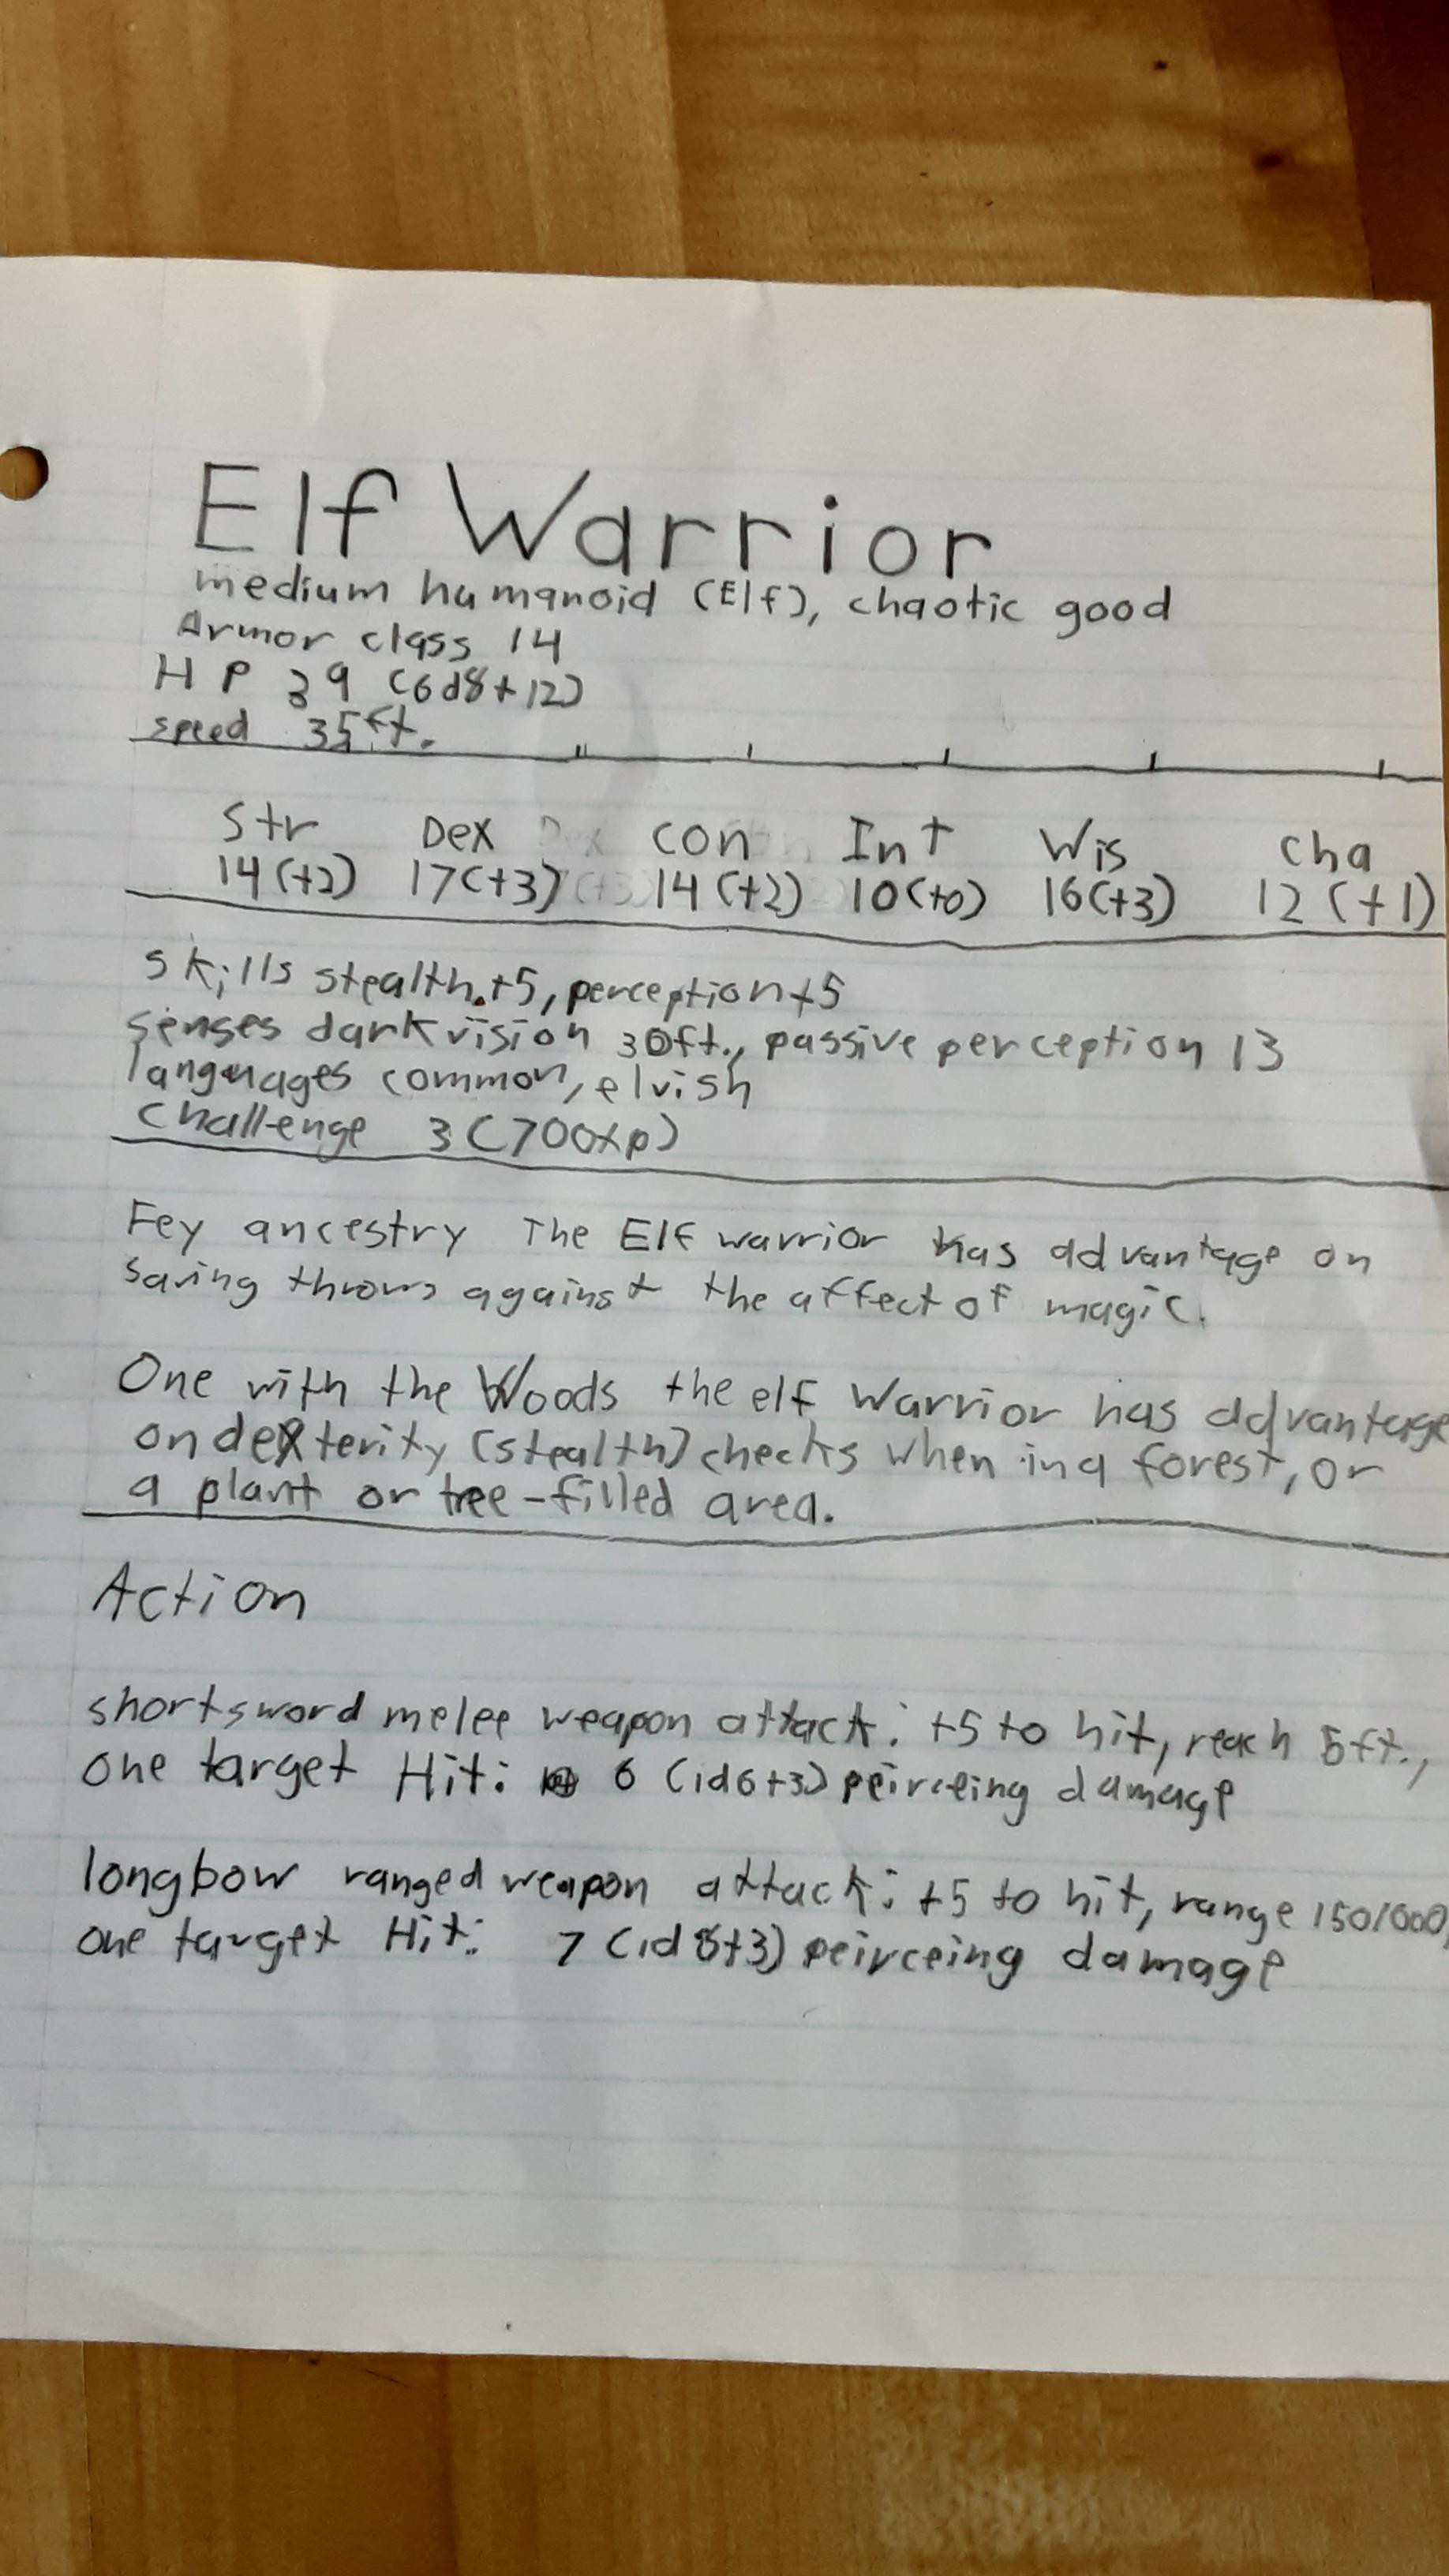 Elf Warrior
medium humanoid (Elf), chaotic good
Armor class 14
HP 39 (6d8+12)
speed 35ft.
Str Dex Con Int Wis Cha
14(+2) 17(+3) 14(+2) 10(+0) 16(+3) 12(+1)
skills stealth.+5, perception+5
senses darkvision 30ft., passive perception 13
languages common, elvish
challenge 3(700xp)
Fey ancestry The Elf warrior has advantage on
saving throws against the affect of magic.
One with the Woods the elf Warrior has advantage
on dexterity (stealth) checks when in a forest, or
a plant or tree-filled area.
Action
shortsword melee weapon attack: +5 to hit, reach 5ft.,
one target Hit: 6 (1d6+3) peirceing damage
longbow ranged weapon attack: +5 to hit, range 150/600,
one target Hit: 7 (1d8+3) peirceing damage